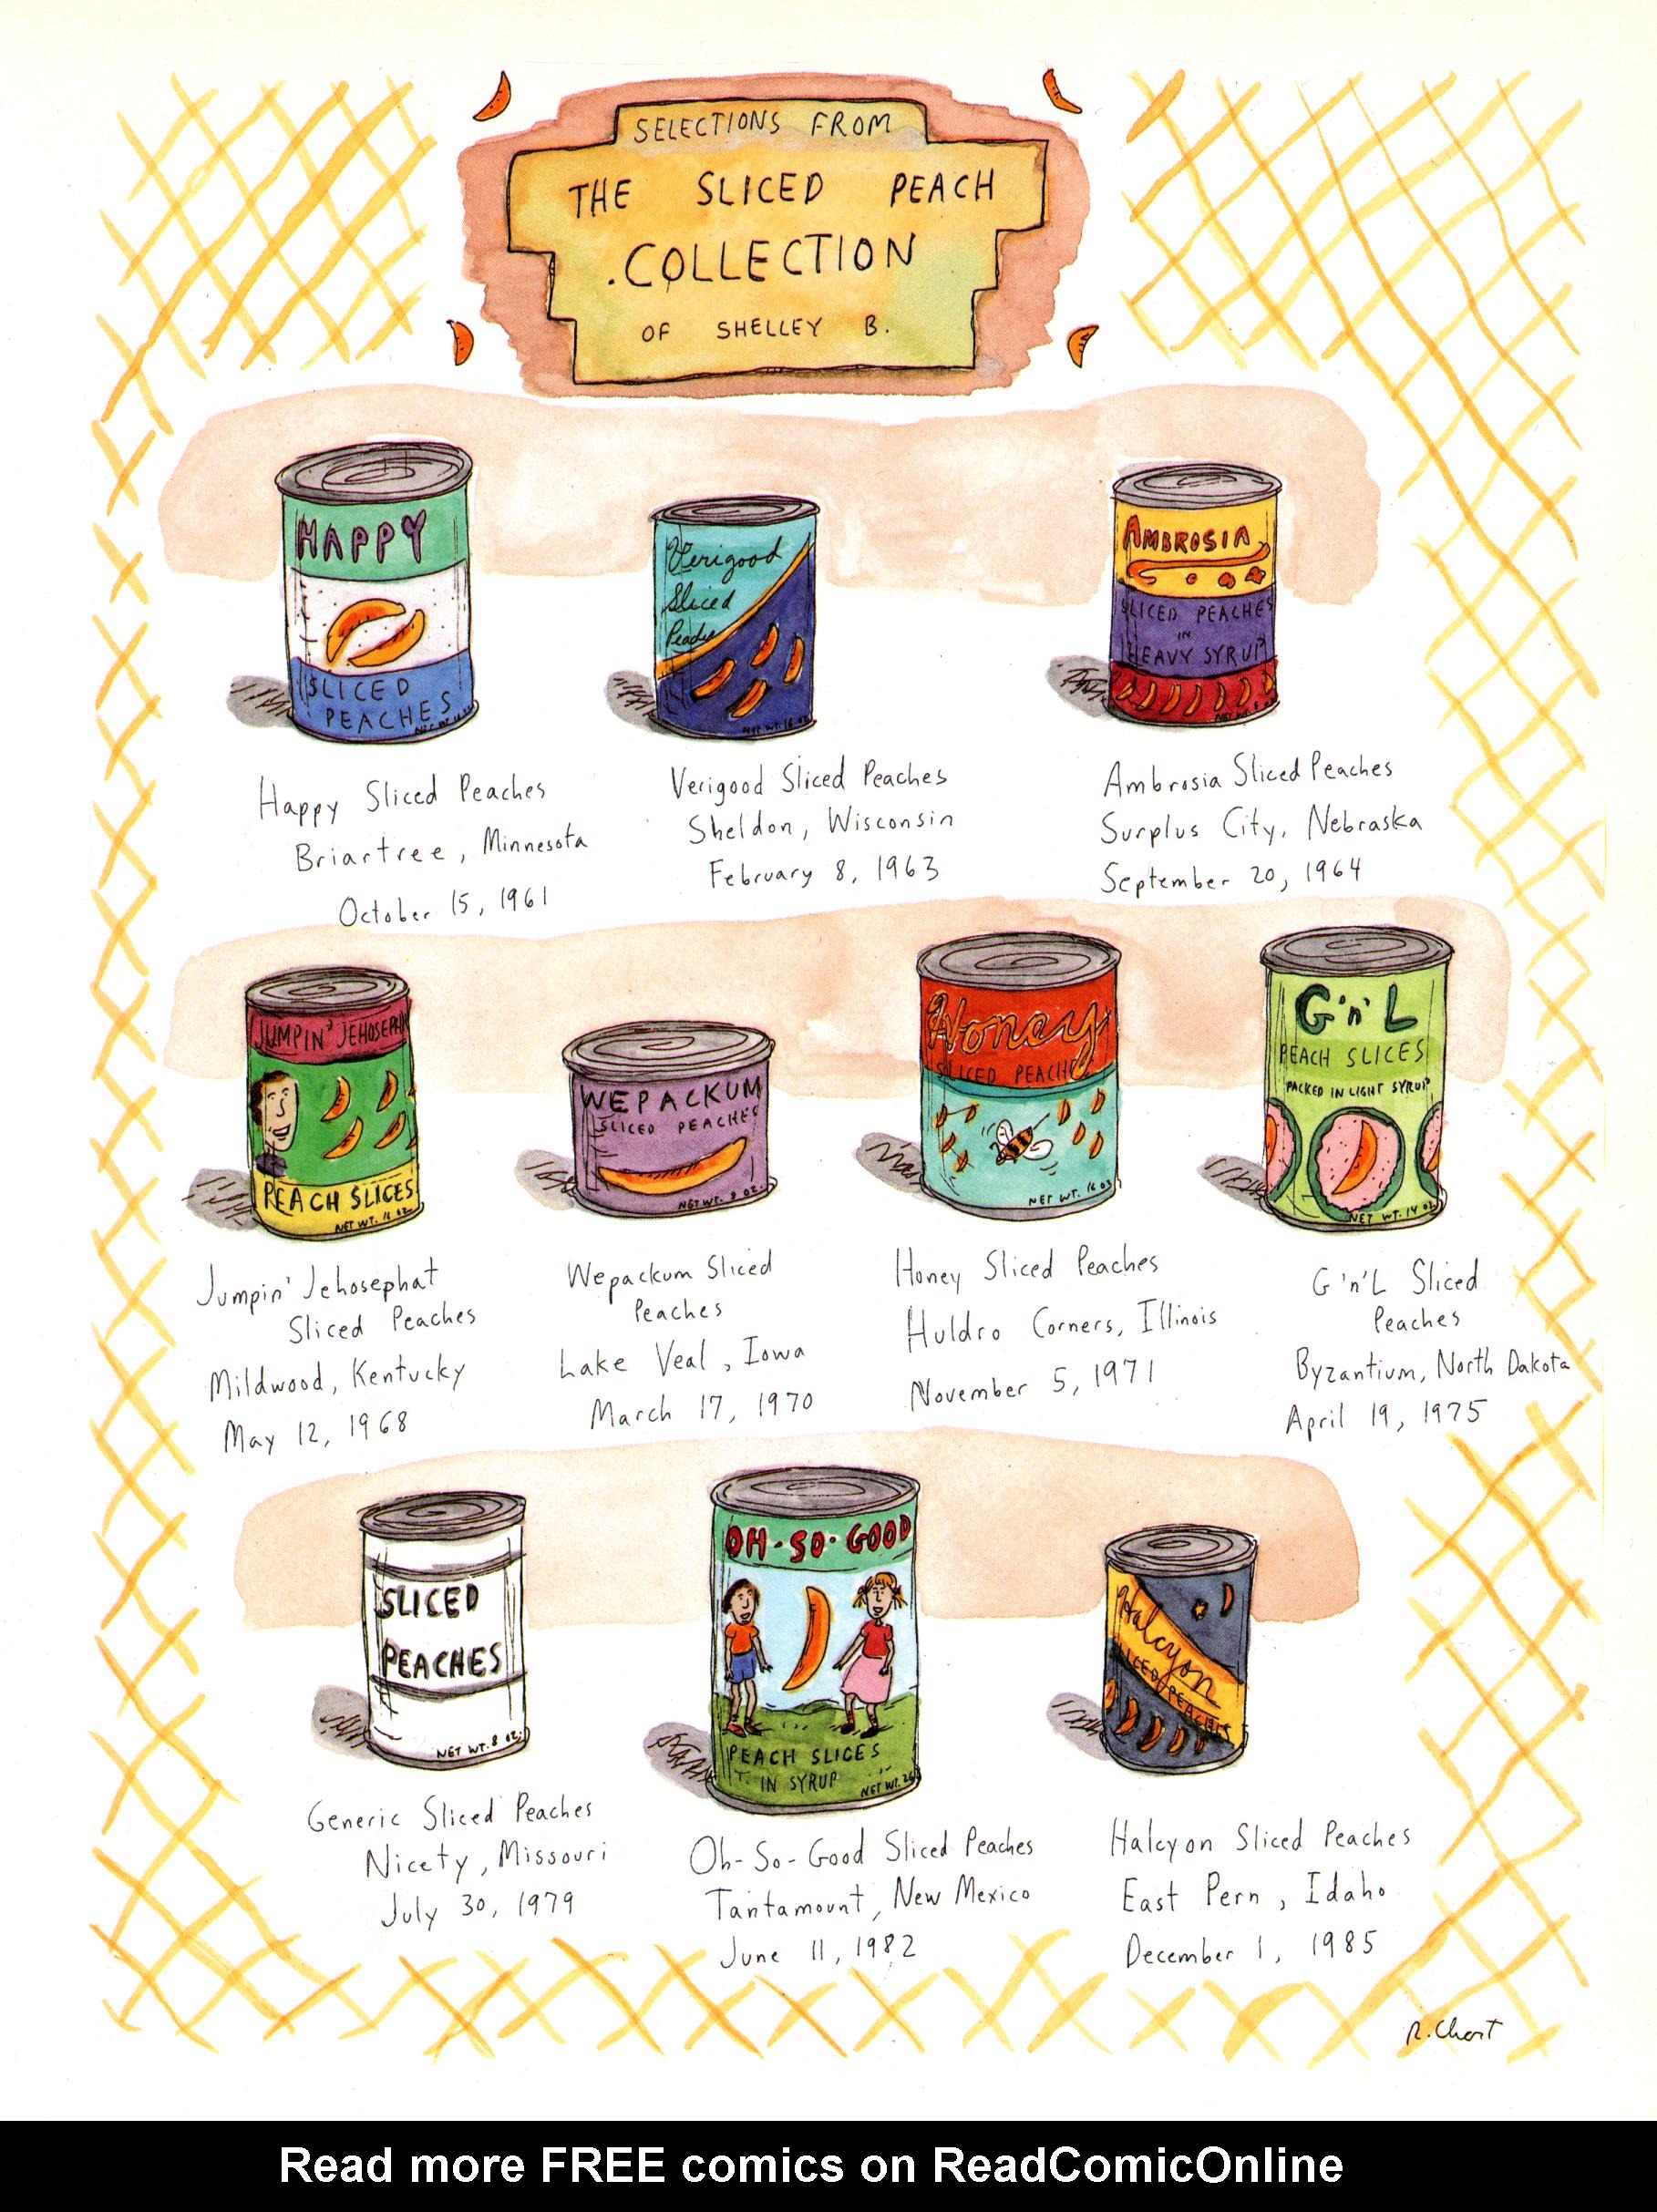 SELECTIONS FROM
THE SLICED PEACH
COLLECTION
OF SHELLEY B.
HAPPY
SLICED
PEACHES
NET WT. 16
Verigood
Sliced
Peaches
NET WT. 16 OZ.
AMBROSIA
SLICED PEACHES
IN
HEAVY SYRUP
NET WT. 8 OZ.
Happy Sliced Peaches
Briartree, Minnesota
October 15, 1961
Verigood Sliced Peaches
Sheldon, Wisconsin
February 8, 1963
Ambrosia Sliced Peaches
Surplus City, Nebraska
September 20, 1964
JUMPIN' JEHOSEPHA
PEACH SLICES
NET WT. 16 OZ.
WEPACKUM
SLICED PEACHES
NET WT. 8 OZ.
Honey
SLICED PEACHE
NET WT. 16 OZ
G'n'L
PEACH SLICES
PACKED IN LIGHT SYRUP
NET WT. 14 OZ.
Jumpin' Jehosephat
Sliced Peaches
Mildwood, Kentucky
May 12, 1968
Wepackum Sliced
Peaches
Lake Veal, Iowa
March 17, 1970
Honey Sliced Peaches
Huldro Corners, Illinois
November 5, 1971
G'n'L Sliced
Peaches
Byzantium, North Dakota
April 19, 1975
SLICED
PEACHES
NET WT. 8 OZ.
OH·SO·GOOD
PEACH SLICES
IN SYRUP
NET WT. 26
Halcyon
SLICED PEACHES
Generic Sliced Peaches
Nicety, Missouri
July 30, 1979
Oh-So-Good Sliced Peaches
Tantamount, New Mexico
June 11, 1982
Halcyon Sliced Peaches
East Pern, Idaho
December 1, 1985
R. Chast
Read more FREE comics on ReadComicOnline